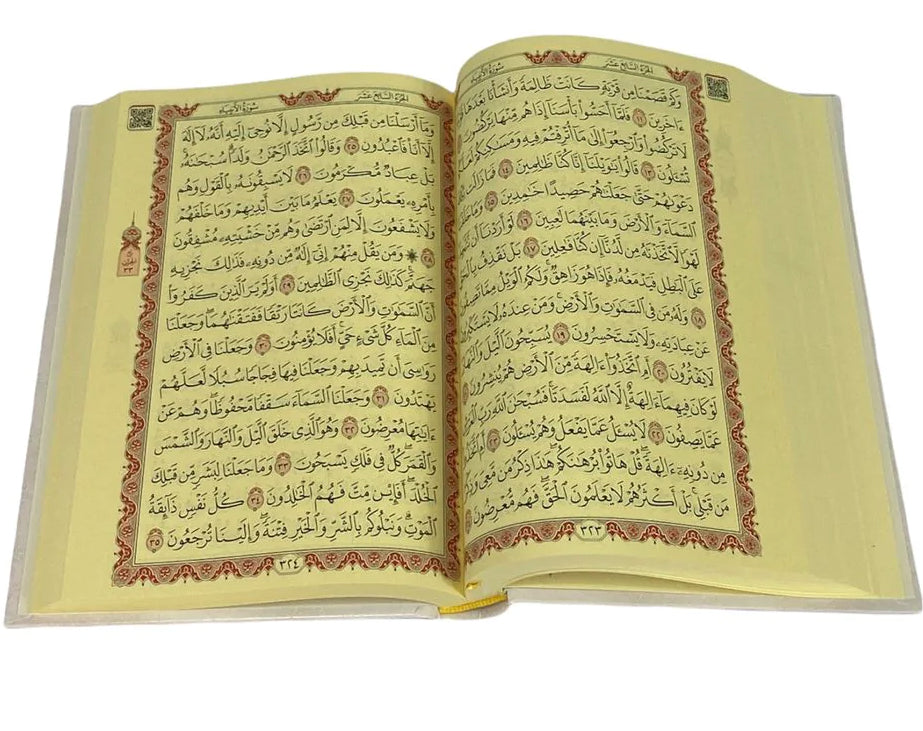 الجُزءُ السَّابِعَ عَشَرَ سُورَةُ الأَنبِيَاءِ
وَكَمْ قَصَمْنَا مِن قَرْيَةٍ كَانَتْ ظَالِمَةً وَأَنشَأْنَا بَعْدَهَا
ءَاخَرِينَ ١١ فَلَمَّآ أَحَسُّوا۟ بَأْسَنَآ إِذَا هُم مِّنْهَا يَرْكُضُونَ
لَا تَرْكُضُوا۟ وَٱرْجِعُوٓا۟ إِلَىٰ مَآ أُتْرِفْتُمْ فِيهِ وَمَسَٰكِنِكُمْ
تُسْـَٔلُونَ ١٣ قَالُوا۟ يَٰوَيْلَنَآ إِنَّا كُنَّا ظَٰلِمِينَ ١٤ فَمَا زَالَت
دَعْوَىٰهُمْ حَتَّىٰ جَعَلْنَٰهُمْ حَصِيدًا خَٰمِدِينَ ١٥ وَمَا
ٱلسَّمَآءَ وَٱلْأَرْضَ وَمَا بَيْنَهُمَا لَٰعِبِينَ ١٦ لَوْ أَرَدْنَآ أَن
لَهْوًا لَّٱتَّخَذْنَٰهُ مِن لَّدُنَّآ إِن كُنَّا فَٰعِلِينَ ١٧ بَلْ نَقْذِفُ
عَلَى ٱلْبَٰطِلِ فَيَدْمَغُهُۥ فَإِذَا هُوَ زَاهِقٌ ۚ وَلَكُمُ ٱلْوَيْلُ مِمَّا
١٨ وَلَهُۥ مَن فِى ٱلسَّمَٰوَٰتِ وَٱلْأَرْضِ ۚ وَمَنْ عِندَهُۥ لَا
عَنْ عِبَادَتِهِۦ وَلَا يَسْتَحْسِرُونَ ١٩ يُسَبِّحُونَ ٱلَّيْلَ وَٱلنَّهَارَ
لَا يَفْتُرُونَ ٢٠ أَمِ ٱتَّخَذُوٓا۟ ءَالِهَةً مِّنَ ٱلْأَرْضِ هُمْ يُنشِرُونَ
لَوْ كَانَ فِيهِمَآ ءَالِهَةٌ إِلَّا ٱللَّهُ لَفَسَدَتَا ۚ فَسُبْحَٰنَ ٱللَّهِ رَبِّ
عَمَّا يَصِفُونَ ٢٢ لَا يُسْـَٔلُ عَمَّا يَفْعَلُ وَهُمْ يُسْـَٔلُونَ ٢٣ أَمِ
مِن دُونِهِۦٓ ءَالِهَةً ۖ قُلْ هَاتُوا۟ بُرْهَٰنَكُمْ ۖ هَٰذَا ذِكْرُ مَن مَّعِىَ
مَن قَبْلِى ۗ بَلْ أَكْثَرُهُمْ لَا يَعْلَمُونَ ٱلْحَقَّ ۖ فَهُم مُّعْرِضُونَ
٣٢٣
الجُزءُ السَّابِعَ عَشَرَ سُورَةُ الأَنبِيَاءِ
وَمَآ أَرْسَلْنَا مِن قَبْلِكَ مِن رَّسُولٍ إِلَّا نُوحِىٓ إِلَيْهِ أَنَّهُۥ لَآ إِلَٰهَ
إِلَّآ أَنَا۠ فَٱعْبُدُونِ ٢٥ وَقَالُوا۟ ٱتَّخَذَ ٱلرَّحْمَٰنُ وَلَدًا ۗ سُبْحَٰنَهُۥ ۚ
بَلْ عِبَادٌ مُّكْرَمُونَ ٢٦ لَا يَسْبِقُونَهُۥ بِٱلْقَوْلِ وَهُم
بِأَمْرِهِۦ يَعْمَلُونَ ٢٧ يَعْلَمُ مَا بَيْنَ أَيْدِيهِمْ وَمَا خَلْفَهُمْ
وَلَا يَشْفَعُونَ إِلَّا لِمَنِ ٱرْتَضَىٰ وَهُم مِّنْ خَشْيَتِهِۦ مُشْفِقُونَ
٢٨ ۞ وَمَن يَقُلْ مِنْهُمْ إِنِّىٓ إِلَٰهٌ مِّن دُونِهِۦ فَذَٰلِكَ نَجْزِيهِ
جَهَنَّمَ ۚ كَذَٰلِكَ نَجْزِى ٱلظَّٰلِمِينَ ٢٩ أَوَلَمْ يَرَ ٱلَّذِينَ كَفَرُوٓا۟
أَنَّ ٱلسَّمَٰوَٰتِ وَٱلْأَرْضَ كَانَتَا رَتْقًا فَفَتَقْنَٰهُمَا ۖ وَجَعَلْنَا
مِنَ ٱلْمَآءِ كُلَّ شَىْءٍ حَىٍّ ۖ أَفَلَا يُؤْمِنُونَ ٣٠ وَجَعَلْنَا فِى ٱلْأَرْضِ
رَوَٰسِىَ أَن تَمِيدَ بِهِمْ وَجَعَلْنَا فِيهَا فِجَاجًا سُبُلًا لَّعَلَّهُمْ
يَهْتَدُونَ ٣١ وَجَعَلْنَا ٱلسَّمَآءَ سَقْفًا مَّحْفُوظًا ۖ وَهُمْ عَنْ
ءَايَٰتِهَا مُعْرِضُونَ ٣٢ وَهُوَ ٱلَّذِى خَلَقَ ٱلَّيْلَ وَٱلنَّهَارَ وَٱلشَّمْسَ
وَٱلْقَمَرَ ۖ كُلٌّ فِى فَلَكٍ يَسْبَحُونَ ٣٣ وَمَا جَعَلْنَا لِبَشَرٍ مِّن قَبْلِكَ
ٱلْخُلْدَ ۖ أَفَإِي۟ن مِّتَّ فَهُمُ ٱلْخَٰلِدُونَ ٣٤ كُلُّ نَفْسٍ ذَآئِقَةُ
ٱلْمَوْتِ ۗ وَنَبْلُوكُم بِٱلشَّرِّ وَٱلْخَيْرِ فِتْنَةً ۖ وَإِلَيْنَا تُرْجَعُونَ ٣٥
٣٢٤